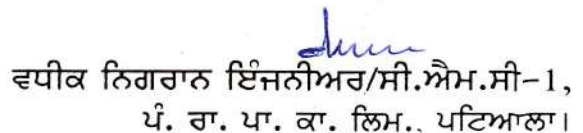 ਵਧੀਕ ਨਿਗਰਾਨ ਇੰਜਨੀਅਰ/ਸੀ.ਐਮ.ਸੀ-1,
ਪੰ. ਰਾ. ਪਾ. ਕਾ. ਲਿਮ., ਪਟਿਆਲਾ।